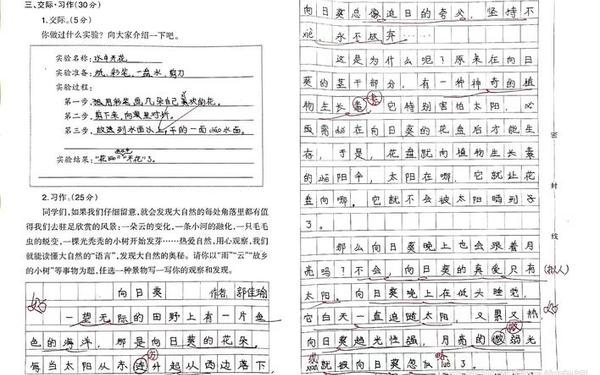 三、交际·习作(30分)
1.交际。(5分)
你做过什么实验?向大家介绍一下吧。
实验名称:水中开花
实验准备:纸、彩笔、一盆水、剪刀
实验过程:
第一步,用彩笔画几朵自己喜欢的花。
第二步,剪下来,向里对折。
第三步,放
实验结果:
2.习作。(25分)
同学们,如果我们仔细留意,就会发现大自然的每处角落里都有值
得我们去驻足欣赏的风景:一朵云的变化,一条小河的融化,一只毛毛
虫的蜕变,一棵光秃秃的小树开始发芽……热爱自然,用心观察,我们
就能读懂大自然的“语言”,发现大自然的奥秘。请你以“雨”“云”“故乡
的小树”等事物为题,任选一种景物写一写你的观察和发现。
向日葵 作者:郭佳瑜
一望无际的田野上有一片金
色的海洋,那是向日葵的花朵,
每当太阳从东边升起从西边落下
向日葵总像追日的夸父,坚持不
永不放弃……
这是为什么呢?原来在向日
葵的茎干部分,有一种神奇的植
物生长素,它特别害怕太阳,必
须在向日葵的花盘后才能生
存,于是,花盘就向植物生长素
的阳伞,太阳在哪,它就让花
盘向哪,它就不会被太阳晒到分
了。
那么向日葵晚上也会跟着月
亮吗?不会,向日葵的真爱只有
太阳。向日葵晚上在低头睡觉,
它白天一直追随太阳,又累又
向日葵趋光性强,月亮的微弱光
就被向日葵忽略了。
(拟人)
密
封
线